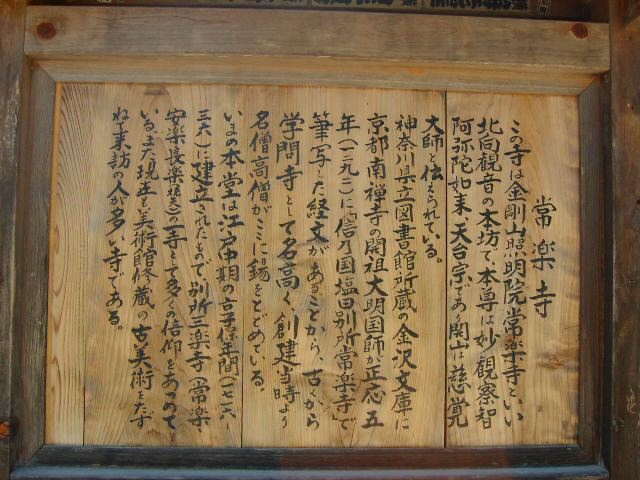 常楽寺
この寺は金剛山照明院常楽寺といい
北向観音の本坊で本尊は妙観察智
阿弥陀如来、天台宗であり開山は慈覚
大師と伝えられている。
神奈川県立図書館所蔵の金沢文庫に
京都南禅寺の開祖大明国師が正応五
年(一二九二)に「信乃国塩田別所常楽寺」で
筆写した経文があることから、古くから
学問寺として名高く創建当時より
名僧高僧がここに錫をとどめている。
いまの本堂は江戸中期の享保年間(一七一六、
三六)に建立されたもので、別所三楽寺(常楽、
安楽、長楽焼失)の一寺として多くの信仰をあつめて
いる。また現在も美術館修蔵の古美術をたず
ね来訪の人が多い寺である。